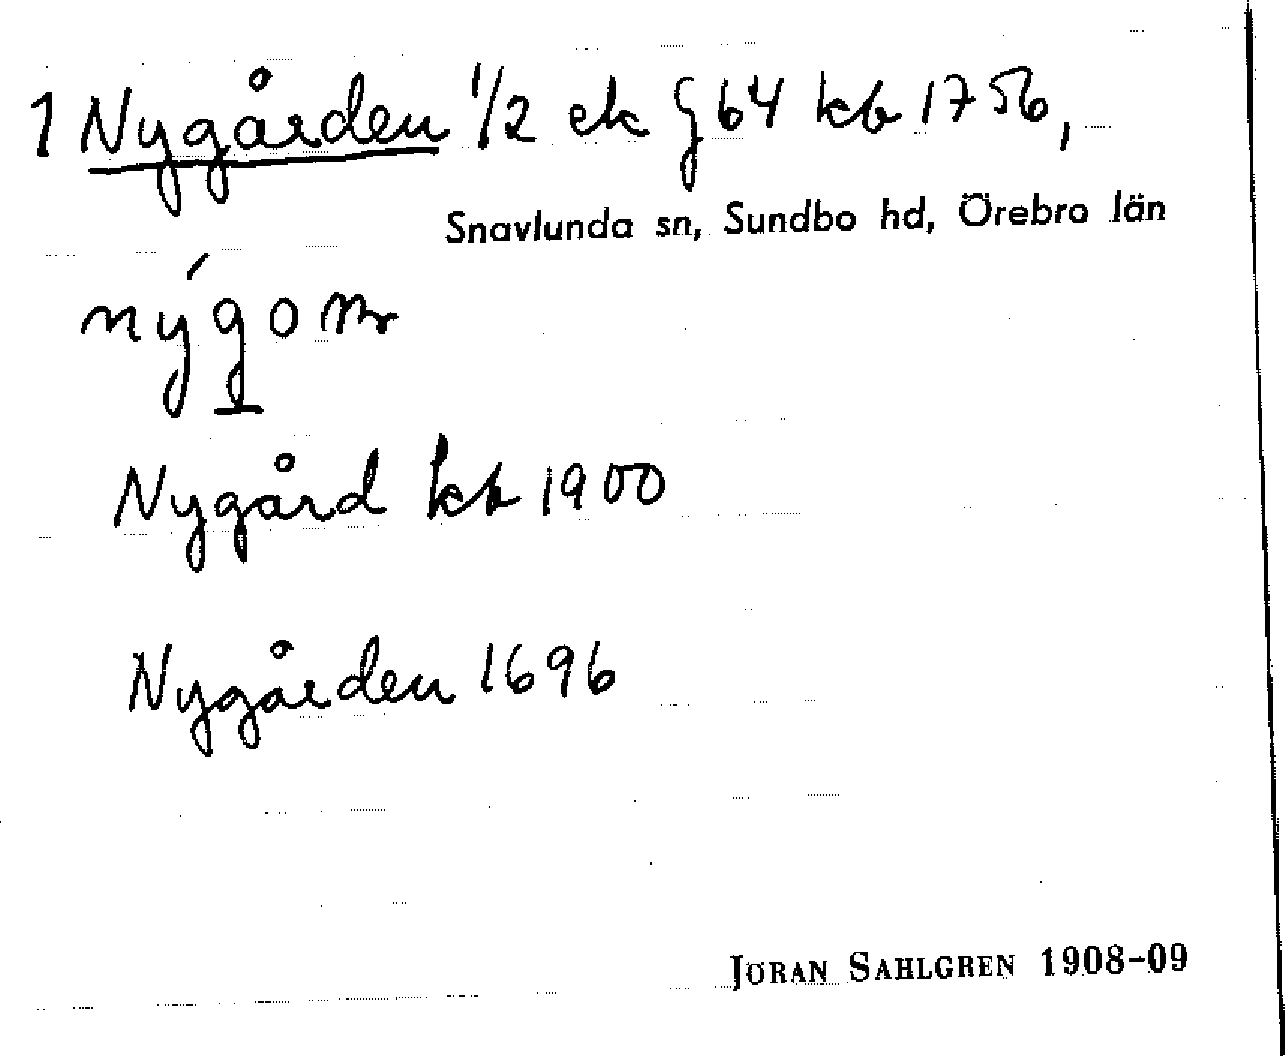 1 Nygården 1/2 ek g 64 kb 1756,
Snavlunda sn, Sundbo hd, Örebro län
Nygård kb 1900
Nygården 1696
JÖRAN SAHLGREN 1908-09